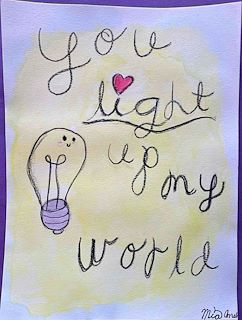 You
light
up
my
world
Mia